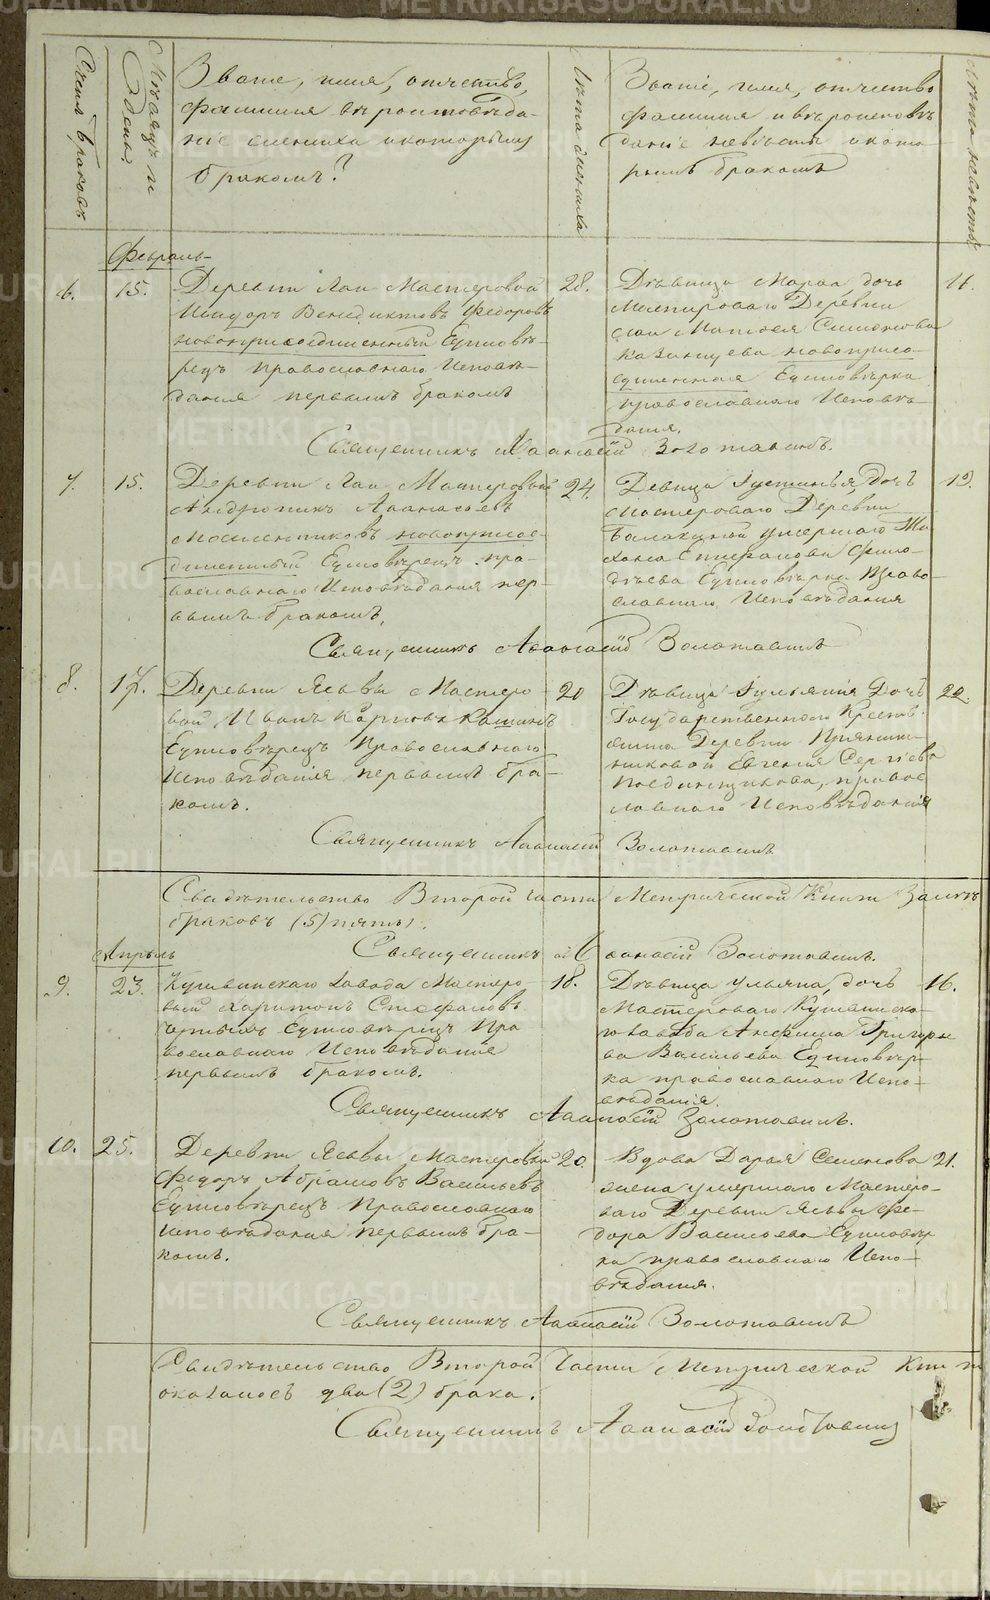 Счетъ браковъ
Мѣсяцъ и день
Званіе, имя, отчество,
фамилія вѣроисповѣда-
ніе жениха и которымъ
бракомъ?
Лѣта жениха
Званіе, имя, отчество
фамилія и вѣроисповѣ-
даніе невѣсты и кото-
рымъ бракомъ
Лѣта невѣсты
Февраль
6. 15. Деревни Лаи Мастеровой
Венедиктовъ Федоровъ
новоприсоединенный Единовѣ-
рецъ православнаго Исповѣ-
данія первымъ бракомъ
28.
Дѣвица Марѳа дочь
Мастероваго Деревни
Лаи Матвея Симонова
Казанцева новоприсо-
единенная Единовѣрка
православнаго Исповѣ-
данія.
Священникъ Аѳанасій Золотавинъ.
7. 15. Деревни Лаи Мастеровой
Андроникъ Аѳанасьевъ
Масленниковъ новоприсое-
диненный Единовѣрецъ пра-
вославнаго Исповѣданія пер-
вымъ бракомъ.
24.
Девица Густинья, дочь
Мастероваго Деревни
Балакиной умершаго
Епифанова
Единовѣрка Право-
славнаго Исповѣданія
19.
Священникъ Аѳанасій Золотавинъ
8. 17. Деревни Ясьвы Мастеро-
вой Иванъ Карповъ Кашинъ
Единовѣрецъ Православнаго
Исповѣданія первымъ бра-
комъ.
20
Дѣвица Гульянія Дочь
Государственнаго Крестья-
нина Деревни
Евгенія Сергіева
правос-
лавнаго Исповѣданія
22.
Священникъ Аѳанасій Золотавинъ
Свидѣтельство Второй части Метрической Книги
браковъ (5) пять.
Священникъ Аѳанасій Золотавинъ.
Апрѣль
9. 23. Кушвинскаго Завода Мастеро-
вый Харитонъ Стефановъ
Единовѣрецъ Пра-
вославнаго Исповѣданіе
первымъ бракомъ.
18.
Дѣвица Ульяна, дочь
Мастероваго Кушвинска-
го Завода Григорье-
ва Васильева Единовѣр-
ка православнаго Испо-
вѣданія.
16.
Священникъ Аѳанасій Золотавинъ.
10. 25. Деревни Ясьвы Мастеровый
Федоръ Абрамовъ Васильевъ
Единовѣрецъ Православнаго
исповѣданія первымъ бра-
комъ.
20.
Вдова Дарья Семенова
жена умершаго Мастеро-
ваго Деревни Ясьвы Фе-
дора Васильева Единовѣр-
ка православнаго Испо-
вѣданія.
21.
Священникъ Аѳанасій Золотавинъ
Свидѣтельство Второй Части Метрической Книги
оказалось два (2) брака.
Священникъ Аѳанасій Золотавинъ
METRIKI.GASO-URAL.RU